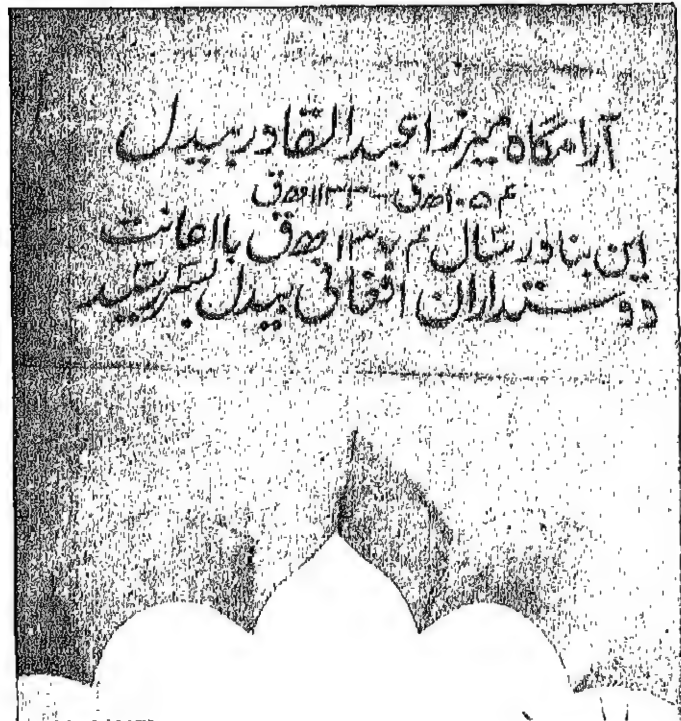 آرامگاه میرزا عبدالقادر بیدل
۱۰۵۴ ه‍ ق - ۱۱۳۳ ه‍ ق
این بنا در سال ه‍ ق با اعانت
دوستداران افغانی بیدل بسر رسید